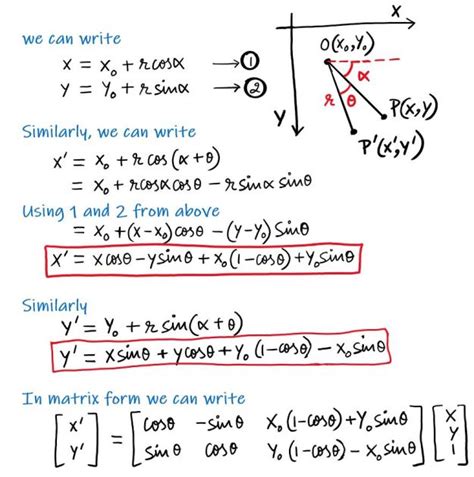 we can write
x = x₀ + r cosα → ①
y = y₀ + r sinα → ②
X
O(x₀,y₀)
α
r θ
Y
P(x,y)
P'(x',y')
Similarly, we can write
x' = x₀ + r cos (α+θ)
= x₀ + r cosα cosθ − r sinα sinθ
Using 1 and 2 from above
= x₀ + (x−x₀) cosθ − (y−y₀) sinθ
x' = x cosθ − y sinθ + x₀ (1−cosθ) + y₀ sinθ
Similarly
y' = y₀ + r sin (α+θ)
y' = x sinθ + y cosθ + y₀ (1−cosθ) − x₀ sinθ
In matrix form we can write
[x'] = [cosθ −sinθ x₀ (1−cosθ) + y₀ sinθ] [x]
[y'] [sinθ cosθ y₀ (1−cosθ) − x₀ sinθ] [y]
[1]